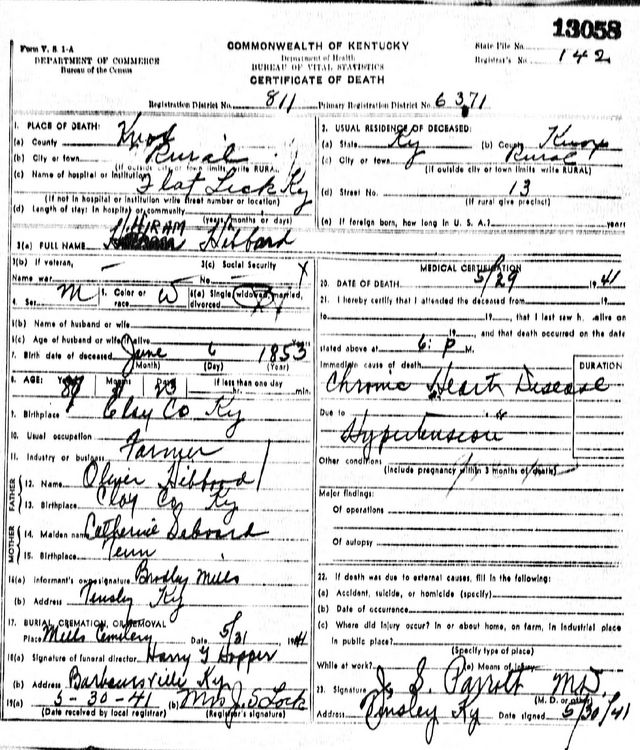 13058
Form V. S. 1-A
DEPARTMENT OF COMMERCE
Bureau of the Census
COMMONWEALTH OF KENTUCKY
Department of Health
BUREAU OF VITAL STATISTICS
CERTIFICATE OF DEATH
State File No.
Registrar's No. 142
Registration District No. 811 Primary Registration District No. 6371
1. PLACE OF DEATH:
(a) County Knox
(b) City or town Rural
(If outside city or town limits write RURAL)
(c) Name of hospital or institution Flat Lick Ky
(If not in hospital or institution write street number or location)
(d) Length of stay: In hospital or community
(years/months or days)
2. USUAL RESIDENCE OF DECEASED:
(a) State Ky (b) County Knox
(c) City or town Rural
(If outside city or town limits write RURAL)
(d) Street No. 13
(If rural give precinct)
(e) If foreign born, how long in U. S. A.? years
3(a) FULL NAME HIRAM Hibbard
3(b) If veteran, Name war
3(c) Social Security No.
4. Sex M 5. Color or race W 6(a) Single, widowed, married, divorced
6(b) Name of husband or wife
6(c) Age of husband or wife if alive Years
7. Birth date of deceased June 6 1853
(Month) (Day) (Year)
8. AGE: Years 87 Months 11 Days 23 If less than one day hr. min.
9. Birthplace Clay Co Ky
10. Usual occupation Farmer
11. Industry or business
FATHER
12. Name Oliver Hibbard
13. Birthplace Clay Co Ky
MOTHER
14. Maiden name Catherine
15. Birthplace Tenn
16(a) Informant's own signature Bradley Mills
(b) Address Tinsley Ky
17. BURIAL, CREMATION, OR REMOVAL
Place Mills Cemetery Date 5/31 1941
18(a) Signature of funeral director Harry Y Hopper
(b) Address Barboursville Ky
19(a) 5-30-41 (b) Mrs J. S. Lock
(Date received by local registrar) (Registrar's signature)
MEDICAL CERTIFICATION
20. DATE OF DEATH 5/29 1941
21. I hereby certify that I attended the deceased from 19
to 19 , that I last saw h. alive on
19 , and that death occurred on the date
stated above at 6: P M.
Immediate cause of death
DURATION
Chronic Heart Disease
Due to
Hypertension
Other conditions
(Include pregnancy within 3 months of death)
Major findings:
Of operations
Of autopsy
22. If death was due to external causes, fill in the following:
(a) Accident, suicide, or homicide (specify)
(b) Date of occurrence
(c) Where did injury occur? In or about home, on farm, in industrial place
in public place?
(Specify type of place)
While at work? (e) Means of injury
23. Signature J. S. Parrott M.D.
(M. D. or other)
Address Tinsley Ky Date signed 5/30/41